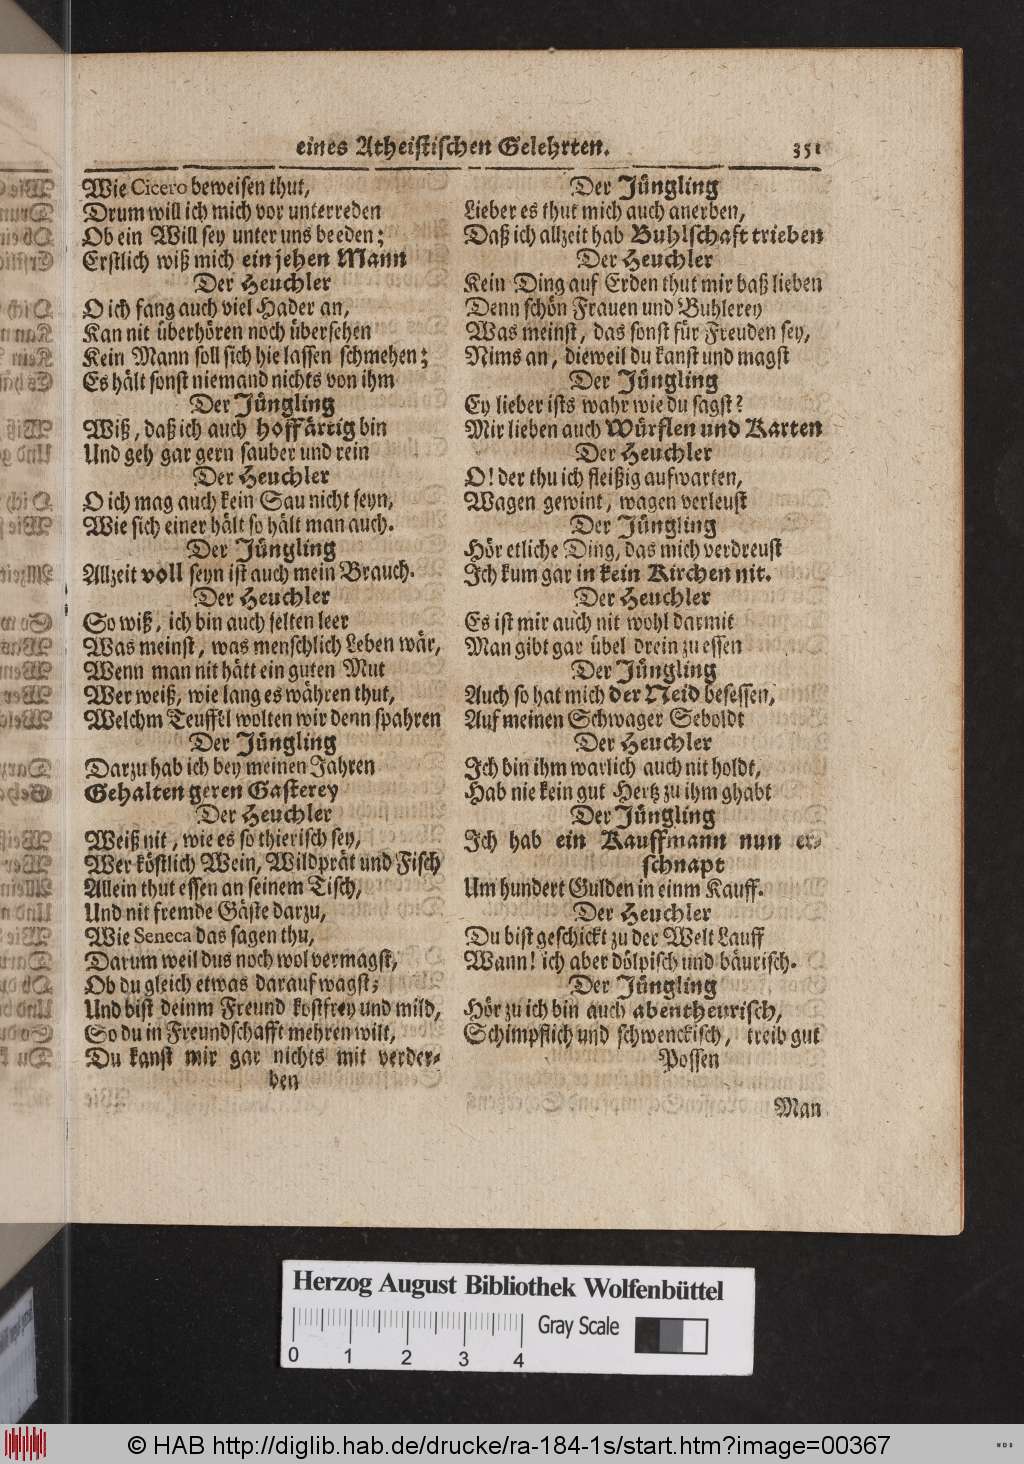 eines Atheistischen Gelehrten. 351
Wie Cicero beweisen thut,
Drum will ich mich vor unterreden
Ob ein Will sey unter uns beeden;
Erstlich wiß mich ein jehen Mann
Der Heuchler
O ich fang auch viel Hader an,
Kan nit überhören noch übersehen
Kein Mann soll sich hie lassen schmehen;
Es hält sonst niemand nichts von ihm
Der Jüngling
Wiß, daß ich auch hoffärtig bin
Und geh gar gern sauber und rein
Der Heuchler
O ich mag auch kein Sau nicht seyn,
Wie sich einer hält so hält man auch.
Der Jüngling
Allzeit voll seyn ist auch mein Brauch.
Der Heuchler
So wiß, ich bin auch selten leer
Was meinst, was menschlich Leben wär,
Wenn man nit hätt ein guten Mut
Wer weiß, wie lang es währen thut,
Welchm Teuffel wolten wir denn spahren
Der Jüngling
Darzu hab ich bey meinen Jahren
Gehalten geren Gasterey
Der Heuchler
Weiß nit, wie es so thierisch sey,
Wer köstlich Wein, Wildprät und Fisch
Allein thut essen an seinem Tisch,
Und nit fremde Gäste darzu,
Wie Seneca das sagen thu,
Darum weil dus noch wol vermagst,
Ob du gleich etwas darauf wagst;
Und bist deinm Freund kostfrey und mild,
So du in Freundschafft mehren wilt,
Du kanst mir gar nichts mit verder-
ben
Der Jüngling
Lieber es thut mich auch anerben,
Daß ich allzeit hab Buhlschaft trieben
Der Heuchler
Kein Ding auf Erden thut mir baß lieben
Denn schön Frauen und Buhlerey
Was meinst, das sonst für Freuden sey,
Nims an, dieweil du kanst und magst
Der Jüngling
Ey lieber ists wahr wie du sagst?
Mir lieben auch Würflen und Karten
Der Heuchler
O! der thu ich fleißig aufwarten,
Wagen gewint, wagen verleust
Der Jüngling
Hör etliche Ding, das mich verdreust
Ich kum gar in kein Kirchen nit.
Der Heuchler
Es ist mir auch nit wohl darmit
Man gibt gar übel drein zu essen
Der Jüngling
Auch so hat mich der Neid besessen,
Auf meinen Schwager Seboldt
Der Heuchler
Ich bin ihm warlich auch nit holdt,
Hab nie kein gut Hertz zu ihm ghabt
Der Jüngling
Ich hab ein Kauffmann nun er-
schnapt
Um hundert Gulden in einm Kauff.
Der Heuchler
Du bist geschickt zu der Welt Lauff
Wann! ich aber dölpisch und bäurisch.
Der Jüngling
Hör zu ich bin auch abentheurisch,
Schimpflich und schwenckisch, treib gut
Possen
Man
Herzog August Bibliothek Wolfenbüttel
Gray Scale
0 1 2 3 4
© HAB http://diglib.hab.de/drucke/ra-184-1s/start.htm?image=00367